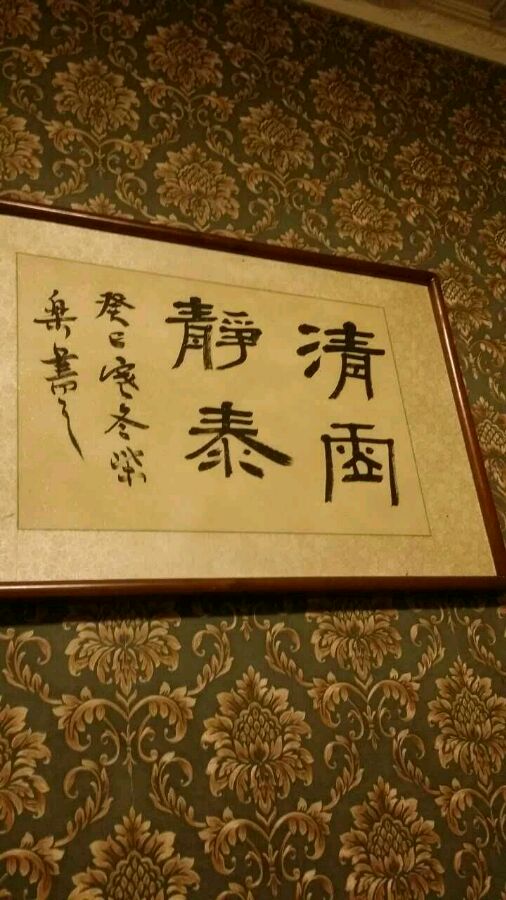 清雨
靜泰
癸巳寒冬柴
樂書之